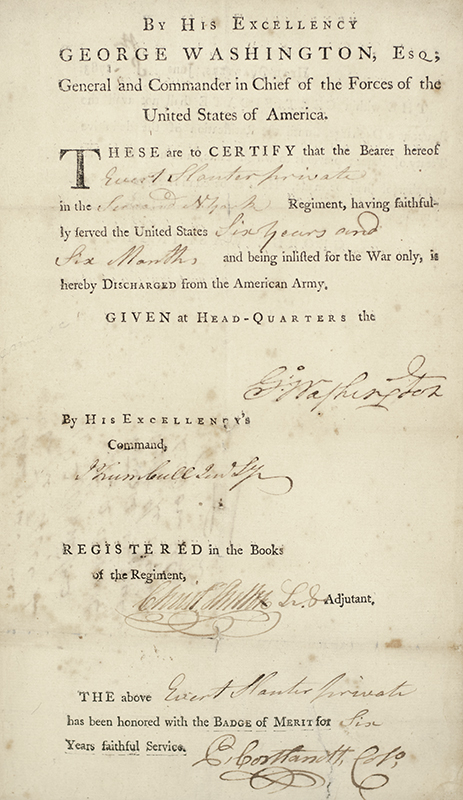 BY HIS EXCELLENCY
GEORGE WASHINGTON, ESQ;
General and Commander in Chief of the Forces of the
United States of America.
THESE are to CERTIFY that the Bearer hereof
Evert Slauter private
in the Second N York Regiment, having faithful-
ly served the United States Six Years and
Six Months and being inlisted for the War only, is
hereby DISCHARGED from the American Army.
GIVEN at HEAD-QUARTERS the
Go Washington
By HIS EXCELLENCY'S
Command,
J Trumbull Junr Sy
REGISTERED in the Books
of the Regiment,
Adjutant,
THE above Evert Slauter private
has been honored with the BADGE of MERIT for Six
Years faithful Service.
P. Cortlandt, Colo